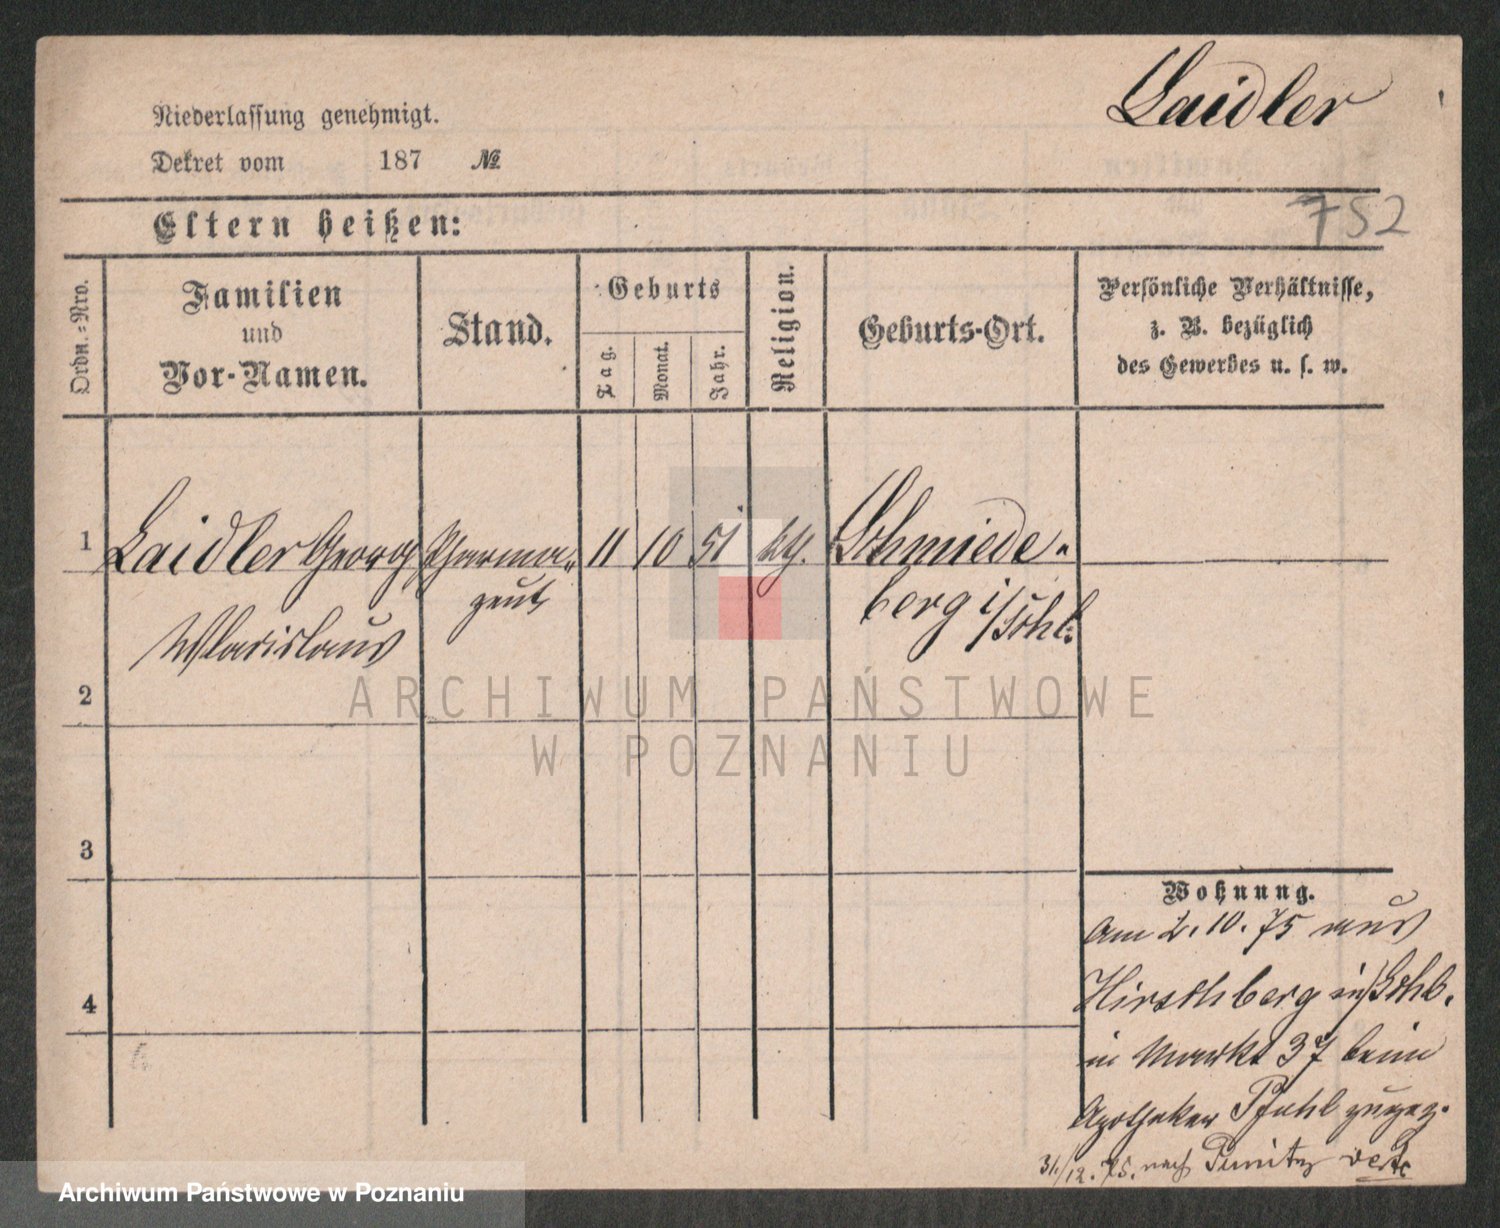 Laidler
Niederlassung genehmigt.
Dekret vom 187 №
752
Eltern heißen:
Ordn.-Nro.
Familien
und
Vor-Namen.
Stand.
Geburts
Tag.
Monat.
Jahr.
Religion.
Geburts-Ort.
Persönliche Verhältnisse,
z. B. bezüglich
des Gewerbes u. s. w.
1 Laidler Georg Pharma- 11 10 51 kth. Schmiede-
zeut berg i/Schl.
Wladislaus
2
ARCHIWUM PAŃSTWOWE
W POZNANIU
3
Wohnung.
Am 2.10.75 aus
Hirschberg in/Schl.
4
in Markt 37 beim
Apotheker Pfuhl zugez.
31/12. 75. nach Punitz
Archiwum Państwowe w Poznaniu